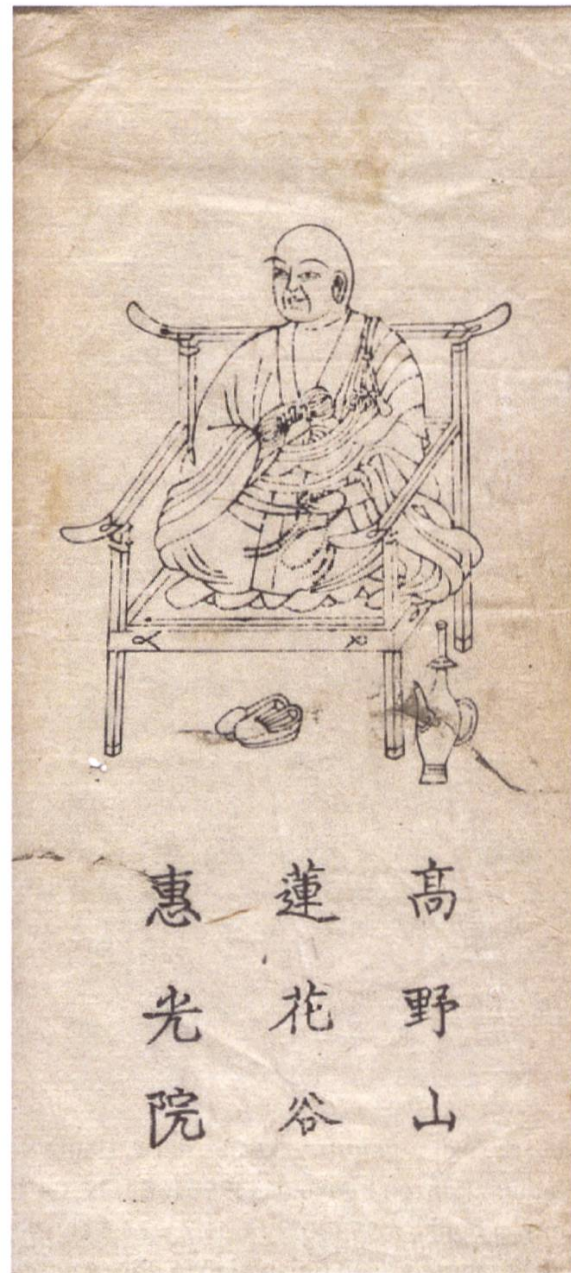 髙野山
蓮花谷
惠光院